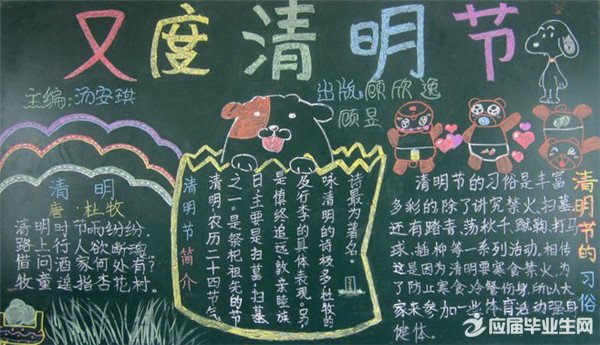 又度清明节
主编:汤安琪
出版:顾欣逸
顾昱
清明
唐·杜牧
清明时节雨纷纷.
路上行人欲断魂.
借问酒家何处有?
牧童遥指杏花村.
清明节简介
清明,农历二十四节气
之一.是祭祀祖先的节
日主要是扫墓.扫墓
是慎终追远敦亲睦族
及行孝的具体表现.另,
咏清明的诗极多杜牧的
诗最为著名.
清明节的习俗
清明节的习俗是丰富
多彩的除了讲究禁火、扫墓
还有踏青、荡秋千、蹴鞠、打马
球、插柳等一系列活动。相传
这是因为清明要寒食禁火,为
了防止寒食冷餐伤身,所以大
家来参加一些体育活动强自
健体.
应届毕业生网